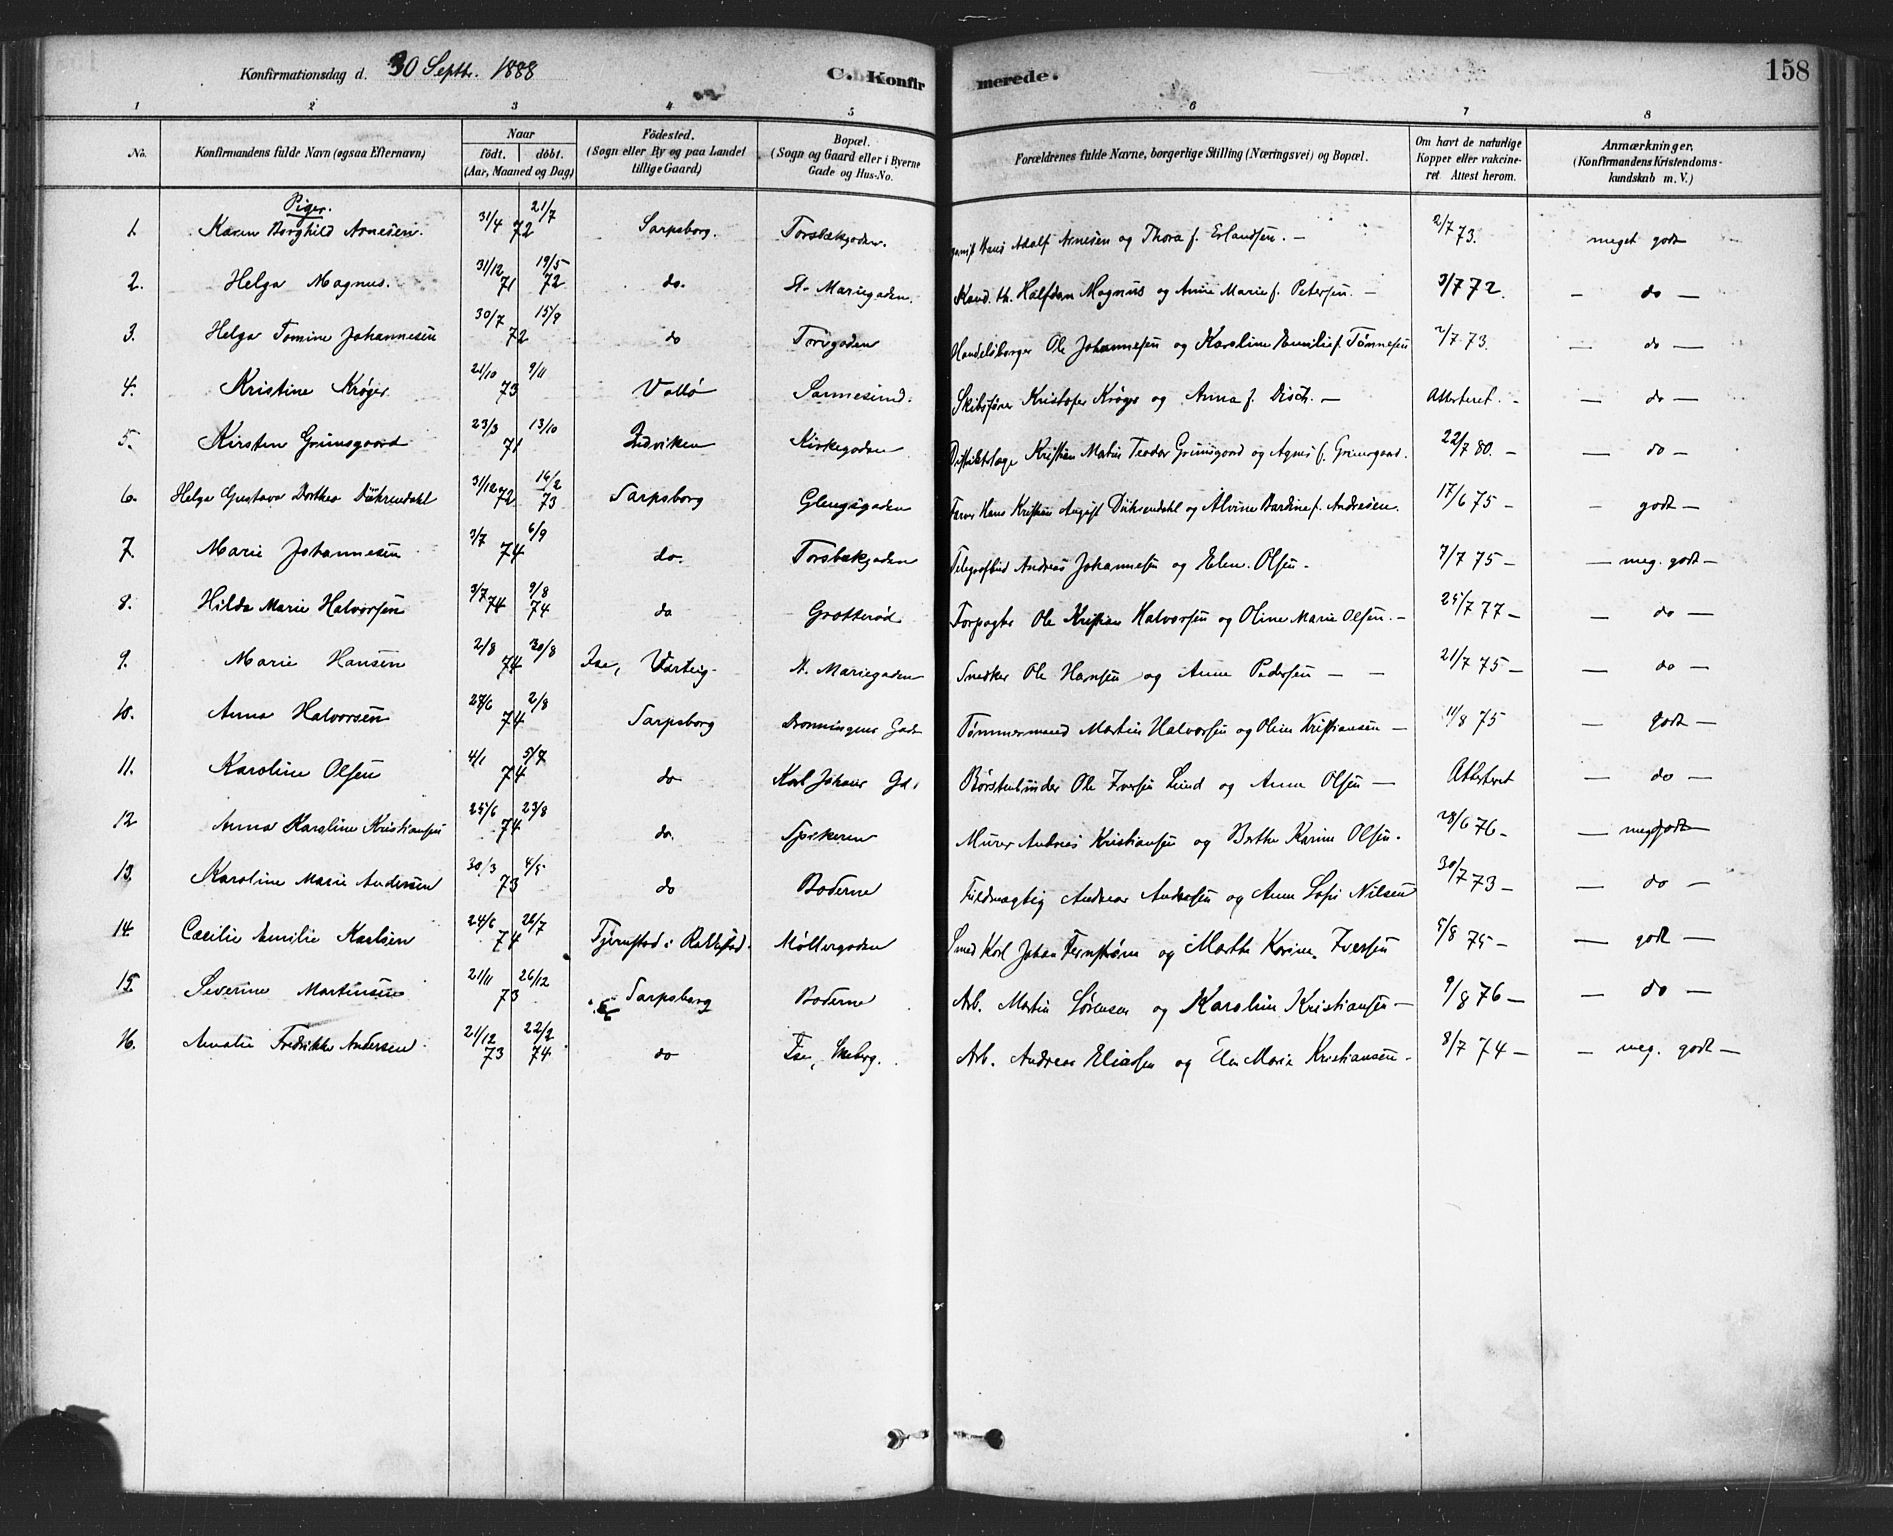 Konfirmationsdag d. 30 Septbr. 1888
C. Konfirmerede.
158
1 2 3 4 5 6 7 8
No.
Konfirmandens fulde Navn (ogsaa Efternavn)
Naar
födt. döbt.
(Aar, Maaned og Dag)
Födested.
(Sogn eller By og paa Landet
tillige Gaard)
Bopæl.
(Sogn og Gaard eller i Byerne
Gade og Hus-No.
Forældrenes fulde Navne, borgerlige Stilling (Næringsvei) og Bopæl.
Om havt de naturlige
Kopper eller vakcine-
ret. Attest herom.
Anmærkninger.
(Konfirmandens Kristendoms-
kundskab m. V.)
Piger.
1. Karen Borghild Arnesen. 31/4 21/7 72 Sarpsborg. Torsbækgaden. Hans Adolf Arnesen og Thora f. Erlandsen. — 2/7 73. meget godt
2. Helga Magnus. 31/12 71 19/5 72 do. St. Mariegaden. Kand. th. Halfdan Magnus og Anne Marie f. Petersen. — 3/7 72. — do —
3. Helga Tomine Johannesen 30/7 15/9 72 do Torvgaden Handelsborger Ole Johannesen og Karoline Emilie f. Tønnesen 2/7 73. — do —
4. Kristine Krøger 21/10 9/11 73 Vallø Sannesund. Skibsfører Kristofer Krøger og Anna f. Disch. — Attesteret. — — do —
5. Kirsten Grimsgaard 23/3 13/10 71 Indviken Kirkegaden Distriktslæge Kristian Matius Teodor Grimsgaard og Agnes f. Grimsgaard. 22/7 80. — — do —
6. Helga Gustava Dorthea Dührendahl 31/12 72 16/2 73 Sarpsborg Glengsgaden Farver Hans Kristian August Dührendahl og Alvine Bardine f. Andresen. 17/6 75 — — godt —
7. Marie Johannesen 3/7 6/9 74 do. Torsbækgaden Telegrafbud Andreas Johannesen og Elen Olsen. 7/7 75 — — meg. godt —
8. Hilda Marie Halvorsen 3/7 74 9/8 74 do Grotterød Forpagter Ole Kristian Halvorsen og Oline Marie Olsen. — 25/7 77 — — do —
9. Marie Hansen 2/8 30/8 74 Ise, Varteig. St. Mariegaden Snedker Ole Hansen og Anne Pedersen — — 21/7 75 — — do —
10. Anna Halvorsen 27/6 2/8 74 Sarpsborg Dronningens Gade Tømmermand Martin Halvorsen og Oline Kristiansen — 11/8 75 — godt —
11. Karoline Olsen 4/1 5/7 74 do Karl Johans Gd. Børstenbinder Ole Iversen Lund og Anne Olsen — Attesteret — do —
12 Anna Karoline Kristiansen 25/6 23/8 74 do. Spikeren Murer Andreas Kristiansen og Berthe Karine Olsen. 28/6 76 — — meg godt —
13. Karoline Marie Andersen 30/3 4/5 73 do Boderne Fuldmægtig Andreas Andresen og Anne Sofie Nilsen 30/7 73 — — do —
14. Cæcilie Emilie Karlsen 24/6 26/7 74 Tjernstad i Rakkestad. Møllergaden Smed Karl Johan Fernstrøm og Marthe Karine Iversen 5/8 75 — — godt —
15. Severine Martinsen 21/11 26/12 73 Sarpsborg Boderne Arb. Martin Sørensen og Karoline Kristiansen — 9/8 76 — — do —
16. Amalie Fredrikke Andersen 21/12 73 22/2 74 do Ise, Skeberg. Arb. Andreas Eliassen og Elen Marie Kristiansen — 8/7 74 — — meg. godt —